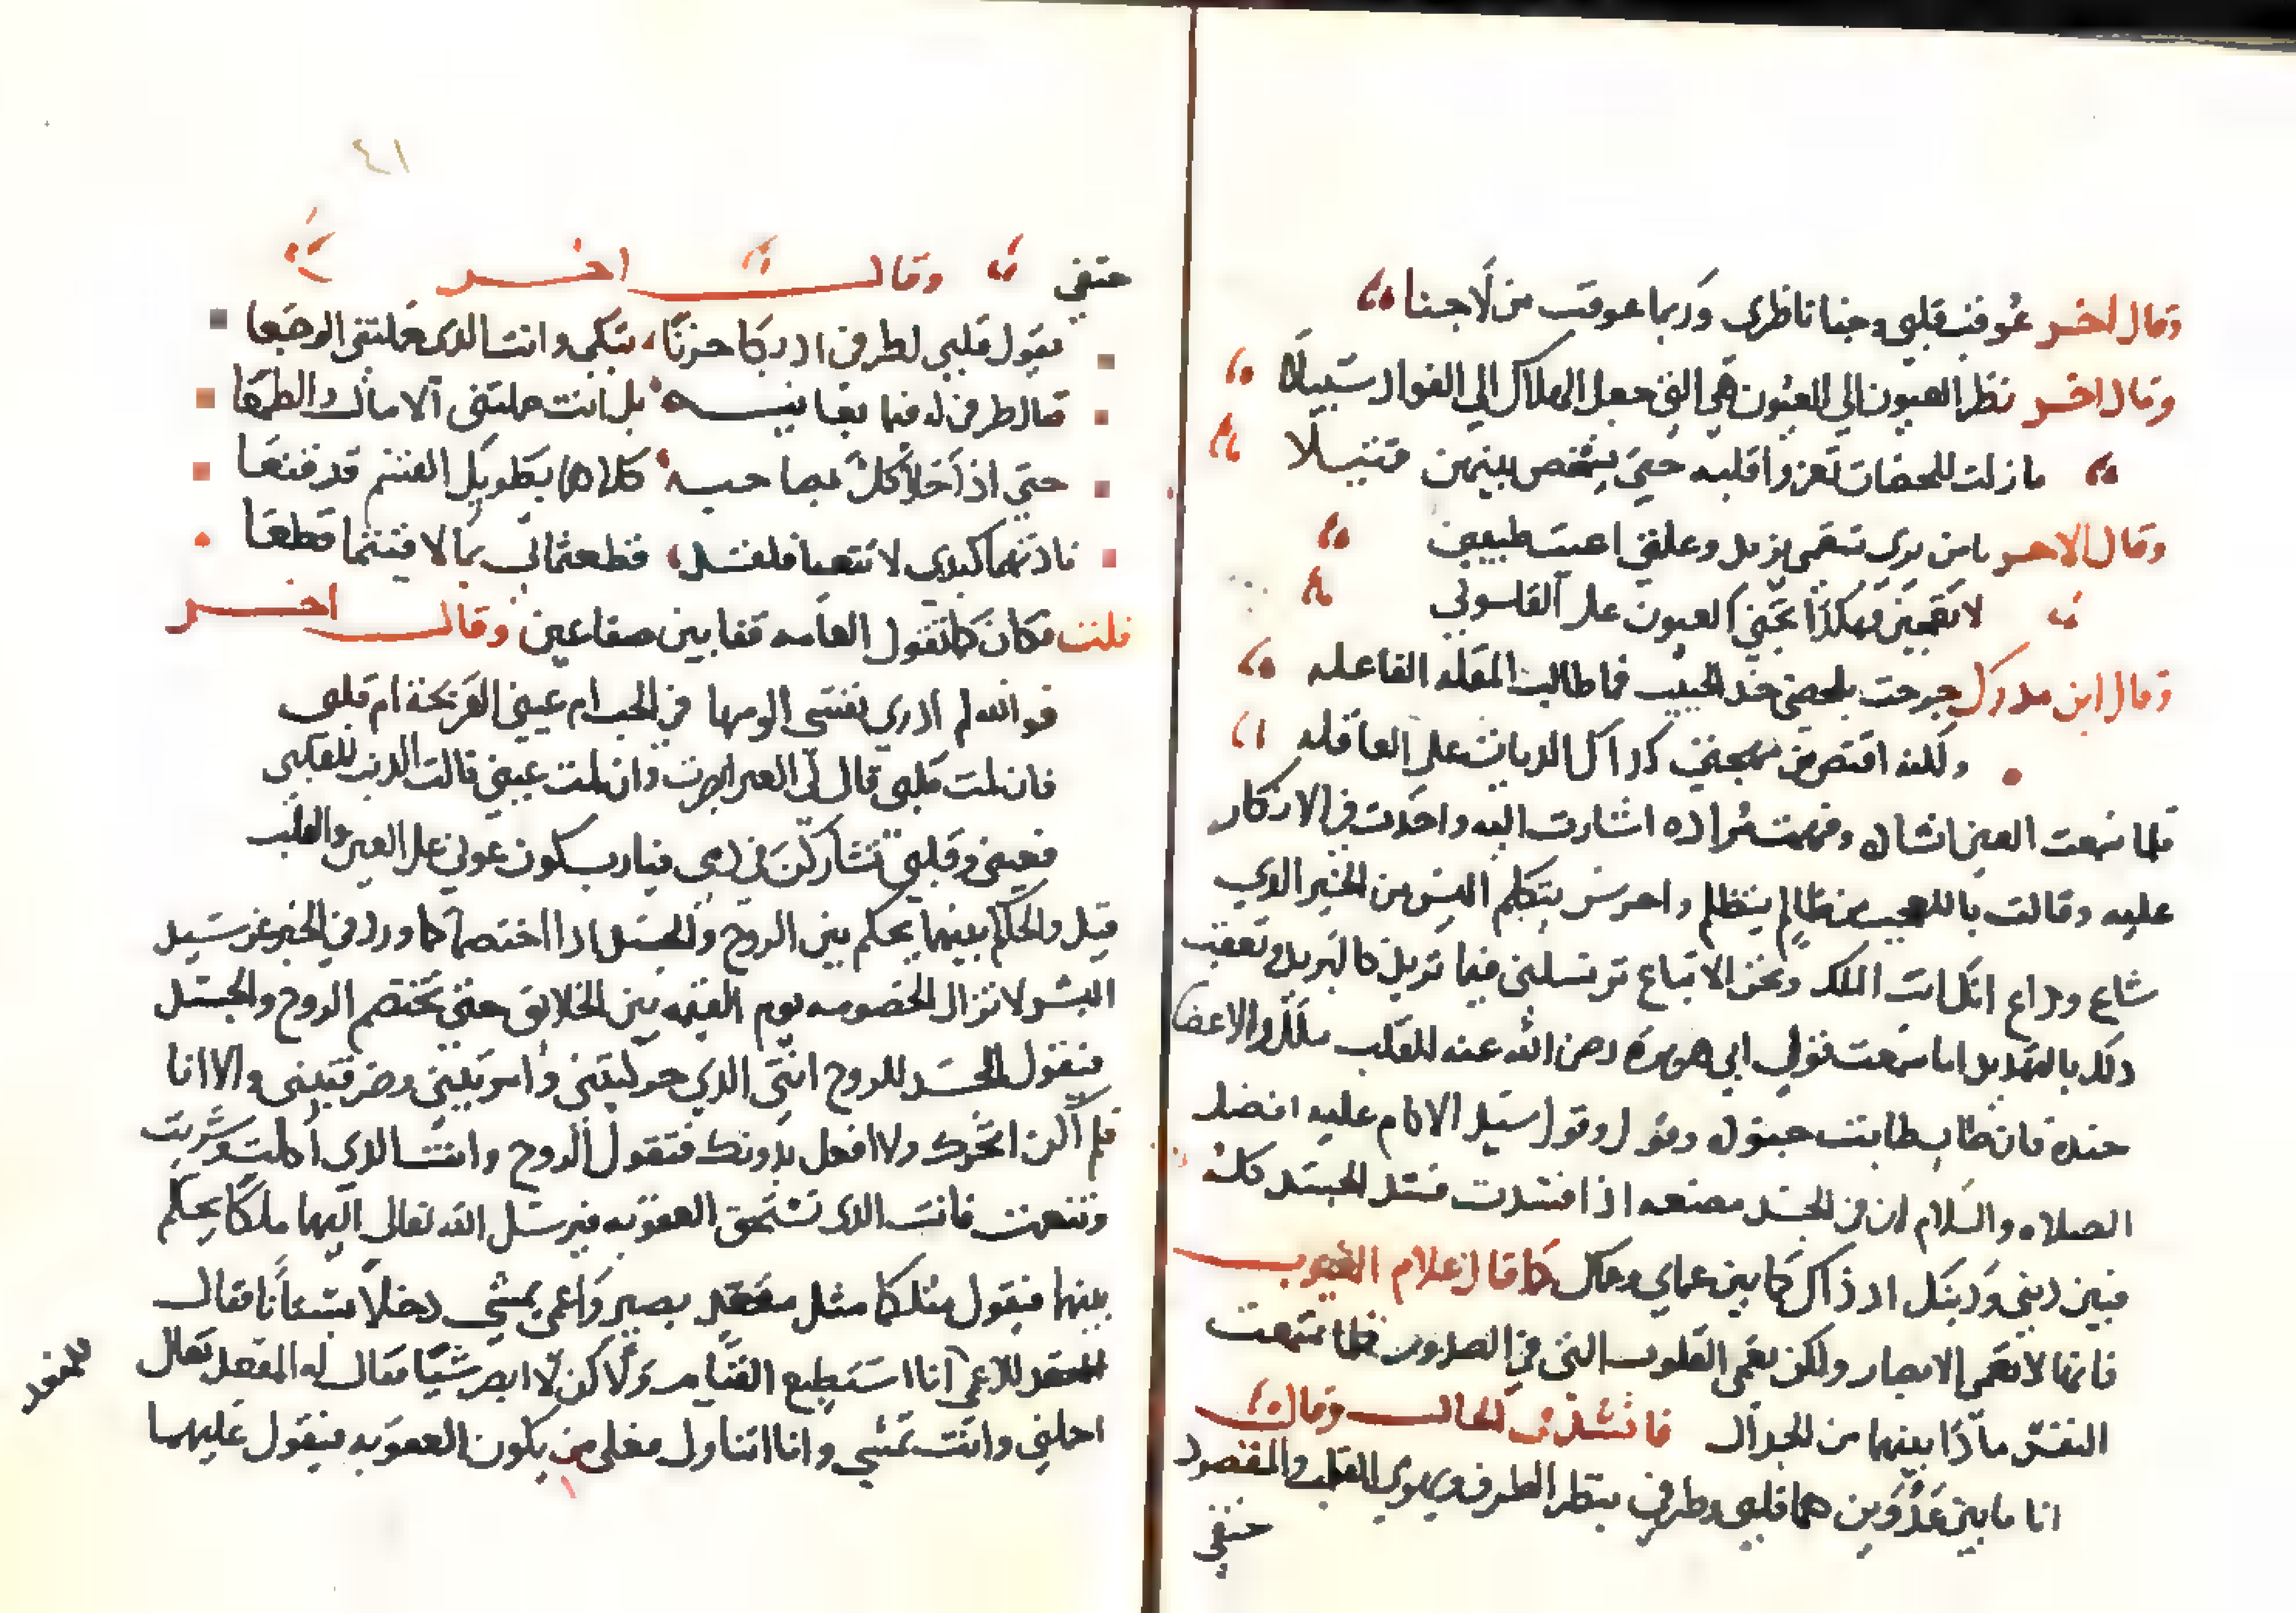 وقال اخر عوقب قلبي وجنا ناظري وربما عوقب من لا جنا
وقال اخر نظر العيون الي العيون هي التي جعل الهلاك الي الفواد سبيلا
ما زلت للحضات تعزوا قلبه حتي يشخص بينهن قتيلا
وقال الاخر يامن يري سقمي يزيد وعلتي اعيت طبيبي
لا تعجبن فهكذا تجني العيون علي القلوب
وقال ابن مدرك جرحت بلحضي خد الحبيب فما طالب المقله الفاعله
ولكنه اقتص من مهجتي كذاك الديات علي العاقله
فلما سمعت العين انشاده وفهمت مراده اشارت اليه واخذت في الانكار
عليه وقالت ياللعجب من ظالم يتظلم واخرس يتكلم اليس من الخبر الذي
شاع وذاع انك انت الملك ونحن الاتباع ترسلني فيما تريد كالبريد وتعقب
ذلك بالتهديد اما سمعت قول ابي هريرة رضي الله عنه القلب ملك والاعضا
جنده فان طاب طابت جنوده وقول سيد الانام عليه افضل
الصلاه والسلام ان في الجسد مضغه اذا فسدت فسد الجسد كله
فبين ذنبي وذنبك اذ ذاك كما بين عماي وعماك كما قال علام الغيوب
فانها لا تعمي الابصار ولكن تعمي القلوب التي في الصدور فلما سمعت
النفس ما دا بينهما من الجدال فانشد في الحال وقال
انا ما بين عدوين هما قلبي وطرفي ينظر الطرف ويهوي القلب والمقصود
حتفي
٤١
حتفي وقال اخر
يقول قلبي لطرفي اذ بكا حزنا تبكي وانت الذي حملتني الوجعا
فقال طرفي له فيما يعاتبه بل انت حملتني الامال والطمعا
حتي اذا خلا كل بصاحبه كلاهما بطويل السقم قد قنعا
نادتهما كبدي لا تتعبا فلقد قطعتماني بما لاقيتما قطعا
قلت فكان كما تقول العامه قفا بين صفاعين وقال اخر
فوالله لم ادري نفسي الومها في الحب ام عيني القريحة ام قلبي
فان لمت قلبي قال لي العين ابصرت وان لمت عيني قالت الذنب للقلبي
فعيني وقلبي تشاركن في دمي فيارب كون عوني علي العين والقلب
قيل والحكم بينهما يحكم بين الروح والجسد اذا اختصما كما ورد في الخبر عن سيد
البشر لا تزال الخصومه يوم القيمه بين الخلايق حتي تختصم الروح والجسد
فيقول الجسد للروح انتي الذي حركتيني وامرتيني وصرفتيني والا انا
فلم اكن اتحرك ولا افعل بدونك فتقول الروح وانت الذي اكلت وشربت
وتنعمت فانت الذي تستحق العقوبه فيرسل الله تعالي اليهما ملكا يحكم
بينهما فيقول مثلكما مثل مقعد بصير واعمي يمشي دخلا بستانا فقال
المقعد للاعمي انا استطيع القيام ولاكن لا ابصر شيا فقال له المقعد تعال
للمقعد
احملني وانت تمشي وانا اتناول فعلي من يكون العقوبه فيقول عليهما